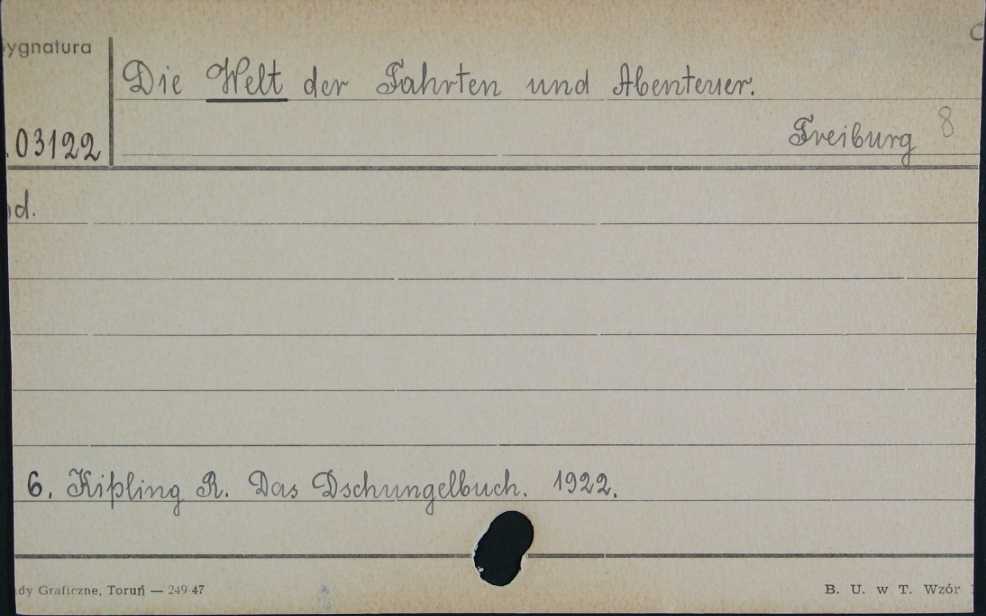 ygnatura
Die Welt der Fahrten und Abenteuer.
03122
Freiburg 8
d.
6. Kipling R. Das Dschungelbuch. 1922.
dy Graficzne, Toruń — 249 47
B. U. w T. Wzór